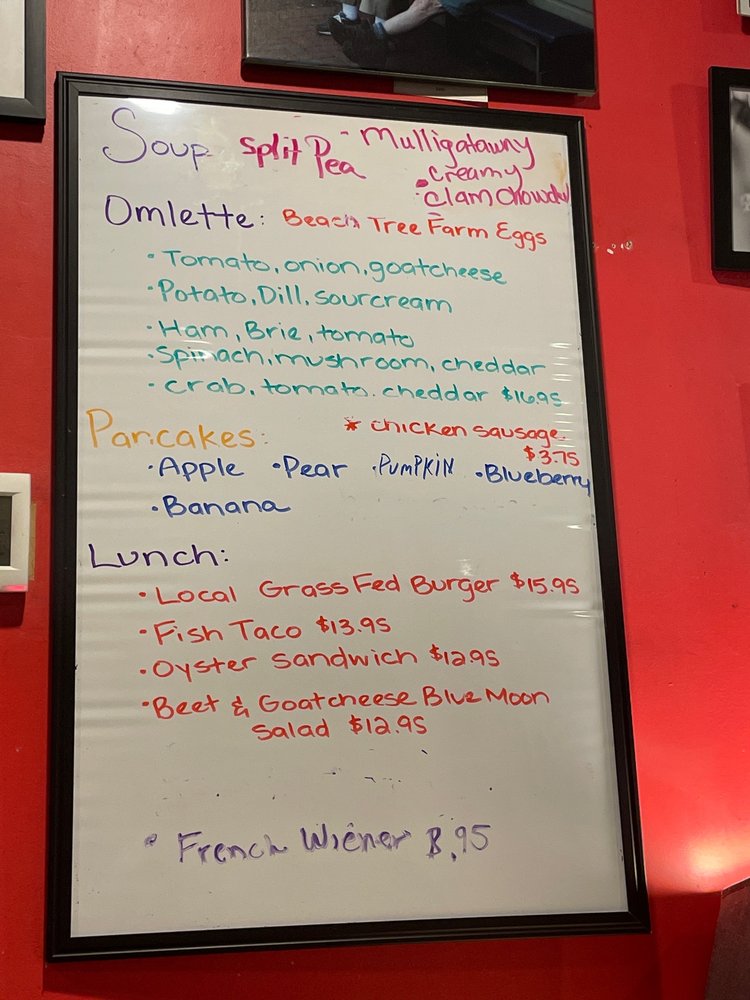 Soup split Pea - Mulligatawny
creamy
• clam chowder
Omlette: Beach Tree Farm Eggs
• Tomato, onion, goatcheese
• Potato, Dill, sourcream
• Ham, Brie, tomato
• Spinach, mushroom, cheddar
• crab, tomato, cheddar $16.95
Pancakes: * chicken sausage
$3.75
• Apple • Pear • PUMPKIN • Blueberry
• Banana
Lunch:
• Local Grass Fed Burger $15.95
• Fish Taco $13.95
• Oyster sandwich $12.95
• Beet & Goatcheese Blue Moon
salad $12.95
• French Wiener 8.95